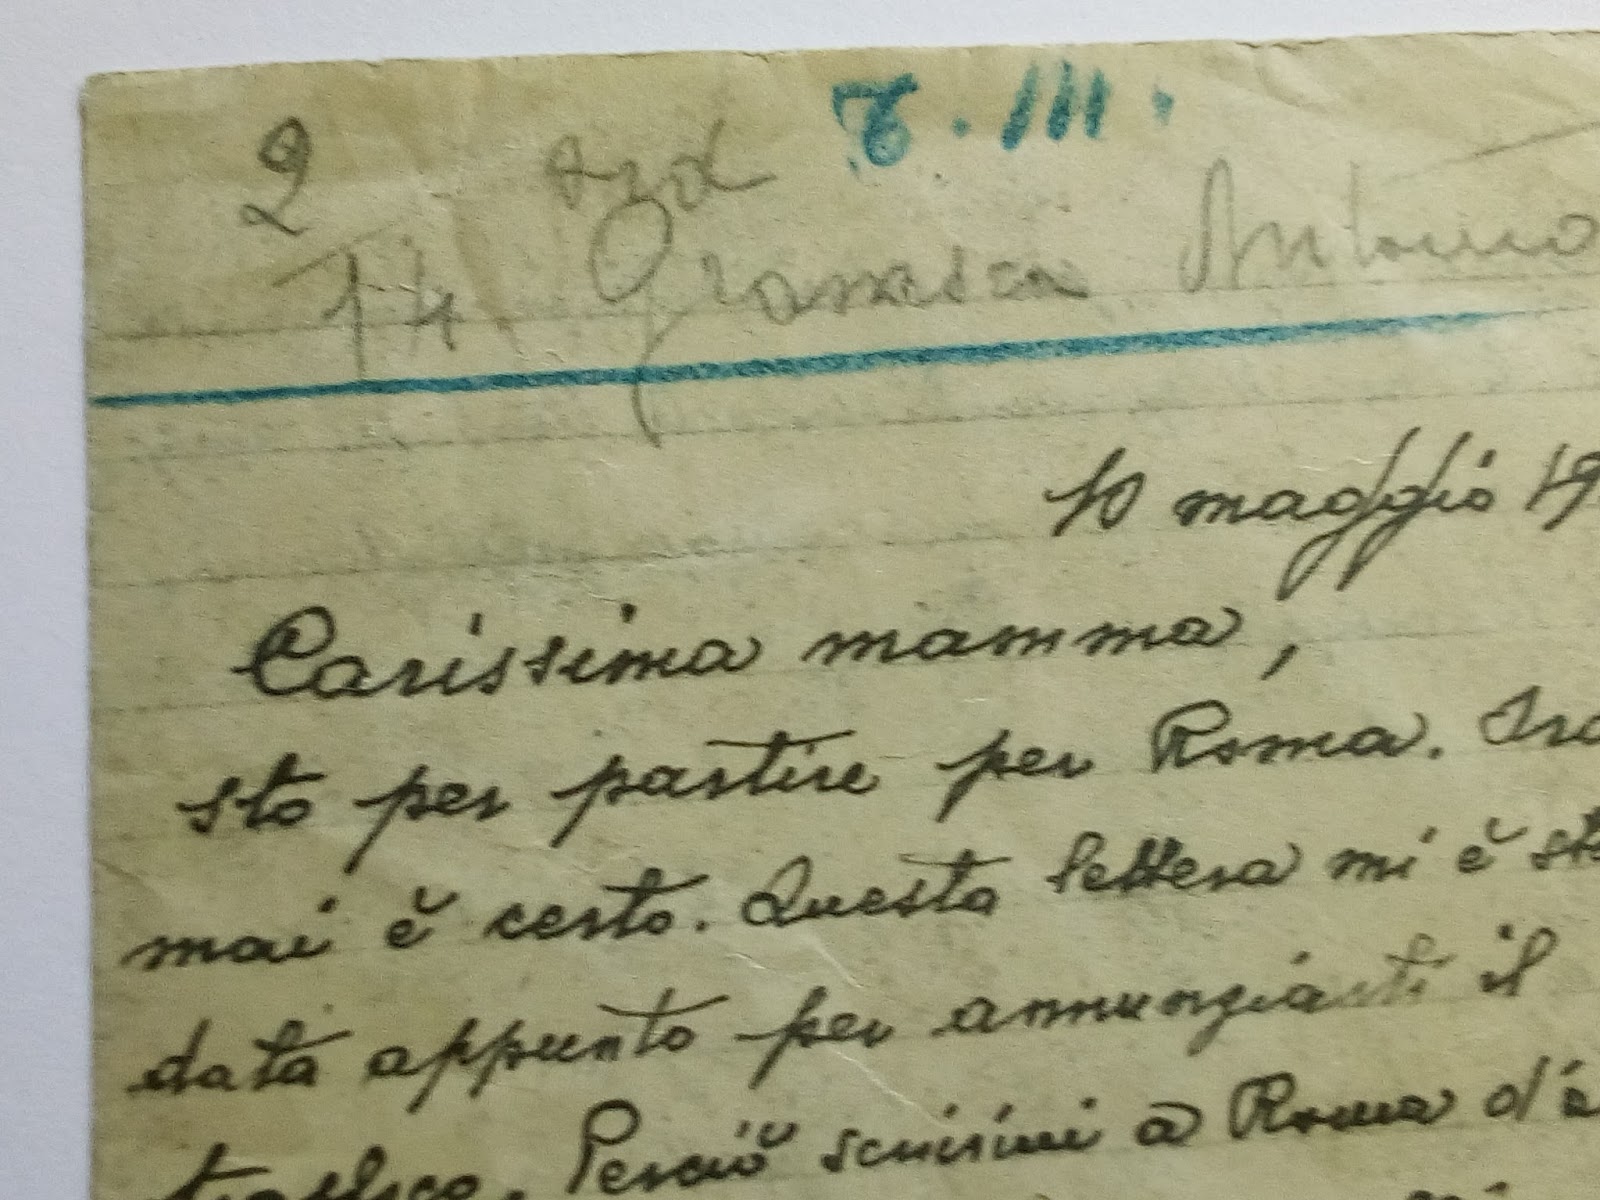 2
T. III.
14 Gramsci Antonio
10 maggio 19
Carissima mamma,
sto per partire per Roma. Oro
mai è certo. Questa lettera mi è sta
data appunto per annunziarti il
trasloco. Perciò scrivimi a Roma d'o